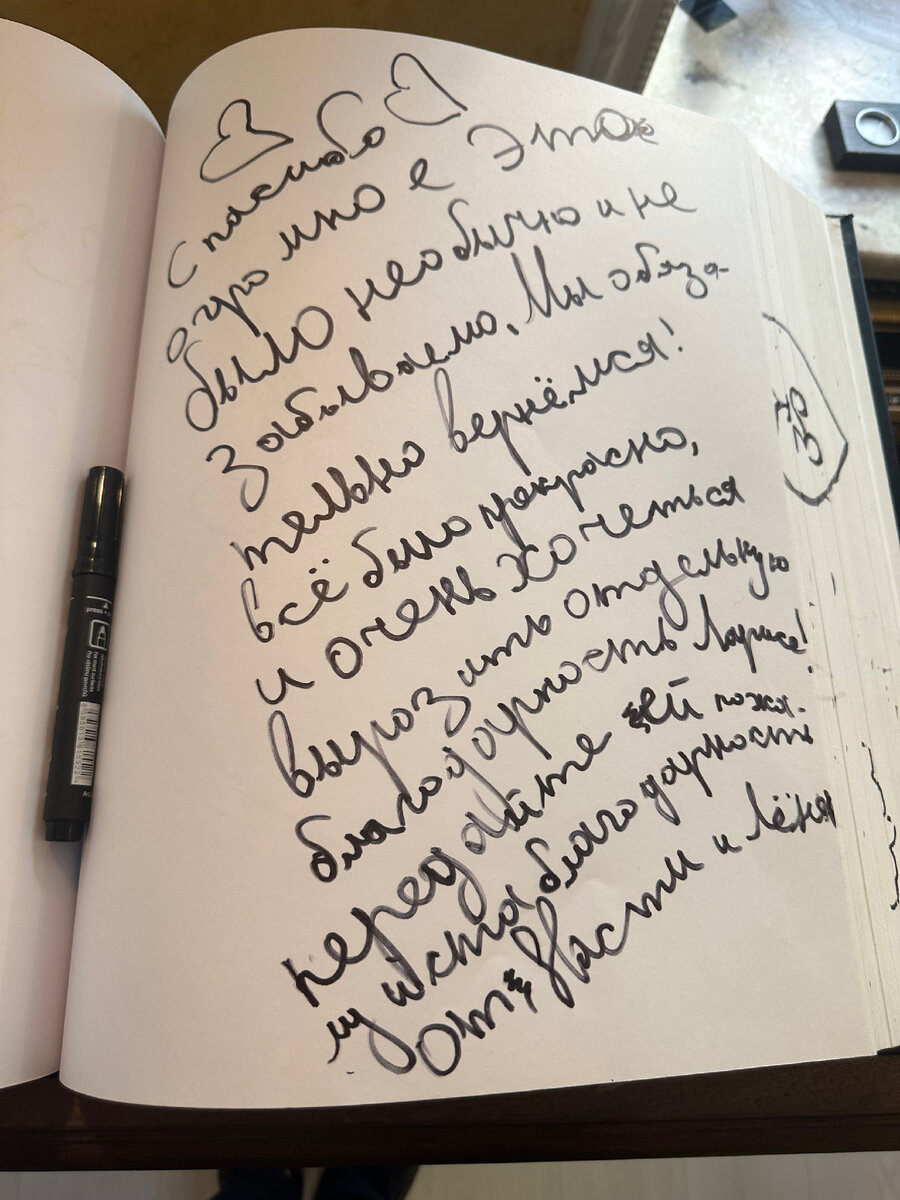 Спасибо
огромное Это
было необычно и не
забываемо. Мы обяза-
тельно вернёмся!
всё было прекрасно,
и очень хочеться
выразить отдельную
благодарность Ларисе!
передайте ей пожа-
луйста благодарность
от Насти и Лёня